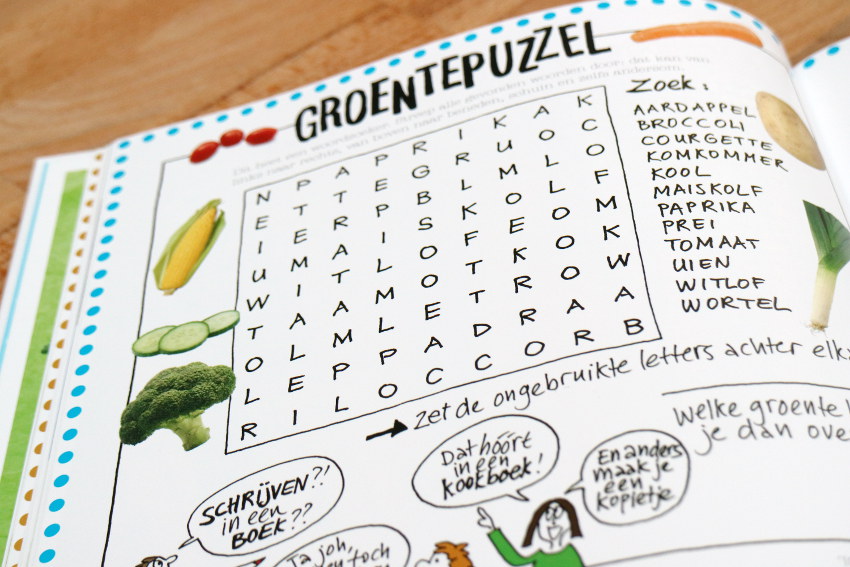 GROENTEPUZZEL
alle gevonden woorden door: dat kan van
links naar rechts, van boven naar beneden, schuin en zelfs andersom.
N P A P R I K A K
E T T E G R U O C
I E R P B L M L O
U M A I S K O L F
W I T L O F E O M
T A A M O T K O K
O L M L E T R O W
L E P P A D R A A
R I L O C C O R B
Zoek:
AARDAPPEL
BROCCOLI
COURGETTE
KOMKOMMER
KOOL
MAISKOLF
PAPRIKA
PREI
TOMAAT
UIEN
WITLOF
WORTEL
→ zet de ongebruikte letters achter elk
Welke groente
je dan ove
SCHRIJVEN?!
in een
BOEK??
Dat hóórt
in een
kookboek!
En anders
maak je
een
kopietje
Ja joh,
toch